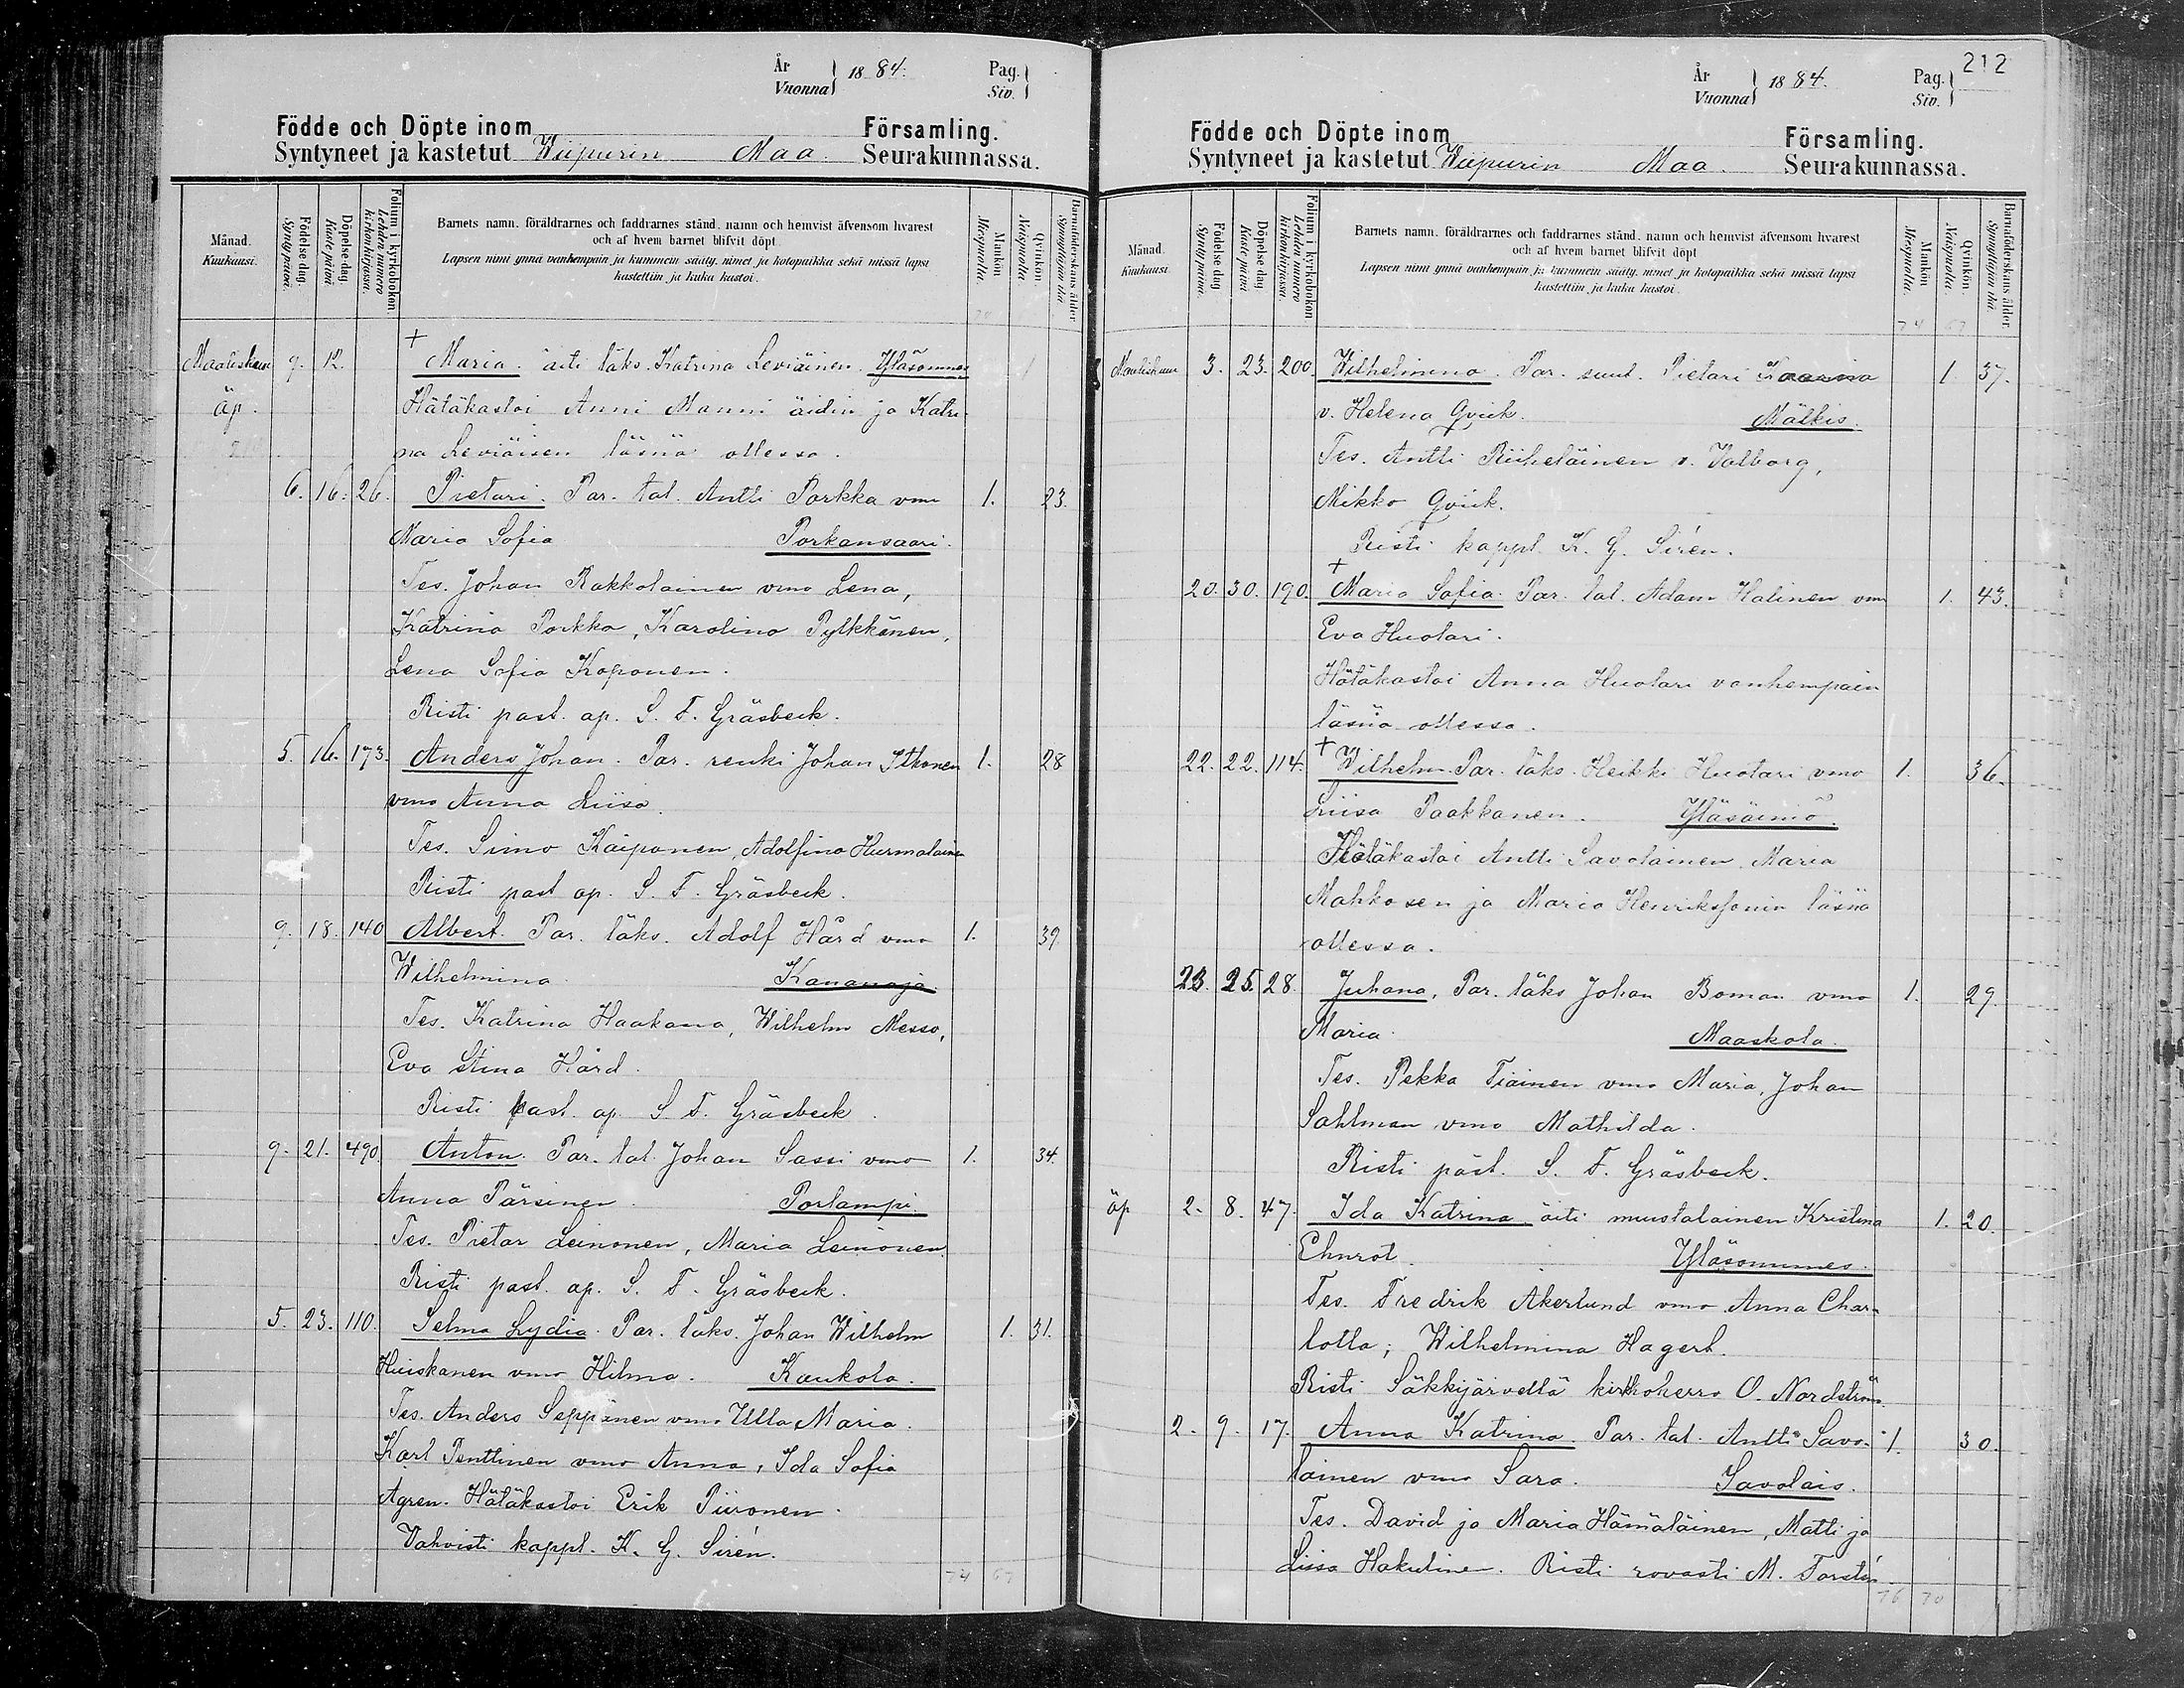 År
Vuonna } 18 84.
Pag.
Siv. }
Födde och Döpte inom Församling.
Syntyneet ja kastetut Wiipurin Maa Seurakunnassa.
Månad.
Kuukausi.
Födelse dag.
Syntypäivä.
Döpelse dag.
Kaste päivä
Folium i kyrkoboken
Lehden numero kirkonkirjassa.
Barnets namn, föräldrarnes och faddrarnes stånd, namn och hemvist äfvensom hvarest
och af hvem barnet blifvit döpt.
Lapsen nimi ynnä vanhempain ja kummein sääty, nimet ja kotopaikka sekä missä lapsi
kastettiin ja kuka kastoi.
Mankön
Miespuolia.
Qvinkön.
Naispuolia.
Barnaföderskans ålder
Synnyttäjän ikä
Maaliskuu 9. 12. + Maria. äiti läks. Katrina Leviäinen. Yläsommes 1
äp. Hätäkastoi Anni Manni äidin ja Katri-
na Leviäisen läsnä ollessa.
6. 16. 26. Pietari. Par. tal. Antti Porkka vmo 1. 23.
Maria Sofia Porkansaari.
Tes. Johan Rakkolainen vmo Lena,
Katrina Porkka, Karolina Pylkkänen,
Lena Sofia Koponen.
Risti past. ap. S. F. Gräsbeck.
5. 16. 173. Anders Johan. Par. renki Johan Itkonen 1. 28
vmo Anna Liisa.
Tes. Simo Kaiponen, Adolfina Hurmalainen
Risti past ap. S. F. Gräsbeck.
9. 18. 140 Albert. Par. läks. Adolf Hård vmo 1. 39
Wilhelmina Kananoja.
Tes. Katrina Haakana, Wilhelm Messo,
Eva Stina Hård.
Risti past. ap. S F. Gräsbeck.
9. 21. 490. Anton. Par. tal. Johan Sassi vmo 1. 34.
Anna Pärsinen. Porlampi.
Tes. Pietar Leinonen, Maria Leinonen
Risti past. ap. S. F. Gräsbeck.
5. 23. 110. Selma Lydia. Par. läks. Johan Wilhelm 1. 31.
Huiskanen vmo Hilma. Kaukola.
Tes. Anders Seppänen vmo Ulla Maria.
Karl Penttinen vmo Anna, Ida Sofia
Agren. Hätäkastoi Erik Piironen.
Vahvisti kappl. K. G. Sirén.
74 67
212
År
Vuonna } 18 84.
Pag.
Siv. }
Födde och Döpte inom Församling.
Syntyneet ja kastetut Wiipurin Maa. Seurakunnassa.
Månad.
Kuukausi
Födelse dag
Syntypäivä.
Döpelse dag
Kaste päivä
Folium i kyrkoboken
Lehden numero kirkonkirjassa.
Barnets namn, föräldrarnes och faddrarnes stånd, namn och hemvist äfvensom hvarest
och af hvem barnet blifvit döpt
Lapsen nimi ynnä vanhempain ja kummein sääty, nimet ja kotopaikka sekä missä lapsi
kastettiin ja kuka kastoi.
Mankön
Miespuolia.
Qvinkön.
Naispuolia.
Barnaföderskans ålder.
Synnyttäjän ikä
74 67
Maaliskuu 3. 23. 200. Wilhelmina. Par. suut. Pietari 1. 37.
v. Helena Gviik. Mälkis.
Tes. Antti Riiheläinen v. Valborg,
Mikko Gviik.
Risti kappl. K. G. Sirén.
20. 30. 190. + Maria Sofia. Par. tal. Adam Halinen vmo 1. 43.
Eva Huotari.
Hätäkastoi Anna Huotari vanhempain
läsnä ollessa.
22. 22. 114. + Wilhelm. Par. läks. Heikki Huotari vmo 1. 36.
Liisa Paakkanen. Yläsäiniö.
Hätäkastoi Antti Savolainen Maria
Mahkosen ja Maria Henrikssonin läsnä
ollessa.
23. 25. 28. Juhana. Par. läks Johan Boman vmo 1. 29.
Maria. Maaskola.
Tes. Pekka Tiainen vmo Maria, Johan
Sahlman vmo Mathilda.
Risti past. S. F. Gräsbeck.
äp 2. 8. 47. Ida Katrina äiti mustalainen Kristina 1. 20.
Ehnrot. Yläsommes.
Tes. Fredrik Akerlund vmo Anna Char-
lotta, Wilhelmina Hagert.
Risti Säkkijärvellä kirkkoherra O. Nordström
2. 9. 17. Anna Katrina. Par. tal. Antti Savo- 1. 30.
lainen vmo Sara. Savolais.
Tes. David ja Maria Hämäläinen, Matti ja
Liisa Hakulinen. Risti rovasti M. Forstén
76 70